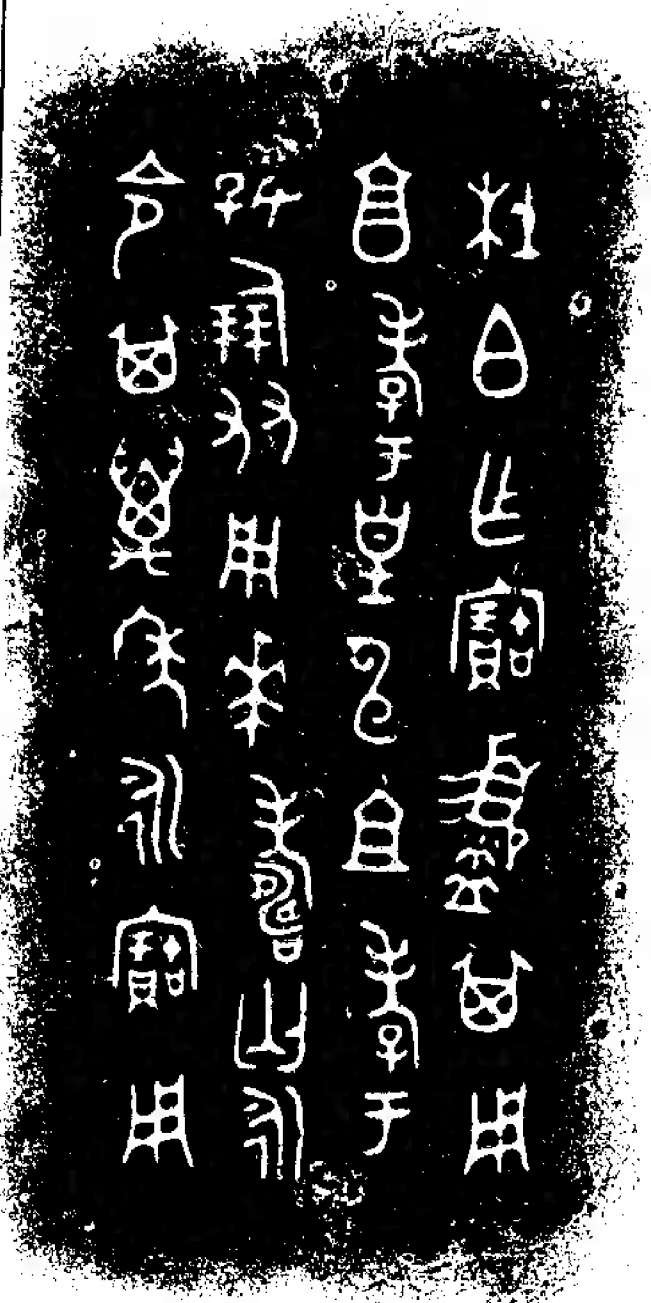 杜白乍寶盨其用
亯孝于皇申且孝于
好倗友用𠦪壽匄永
令其萬年永寶用